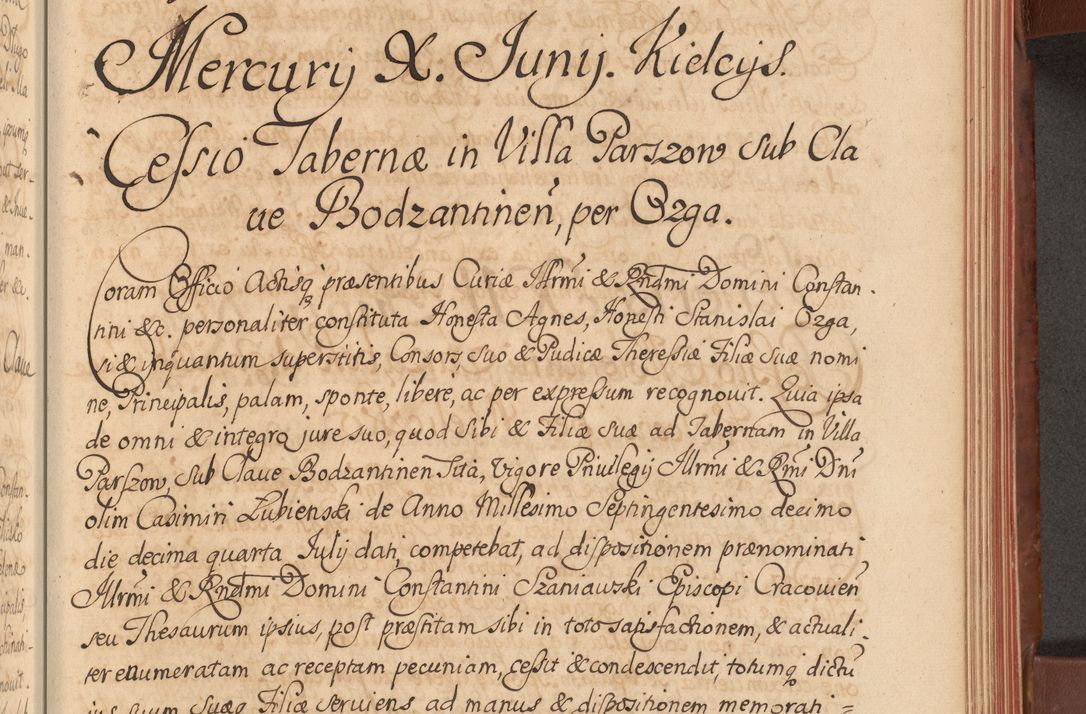 Mercurij X. Junij. Kielcijs.
Cessio Tabernæ in Villa Parszow sub Cla
ue Bodzantineñ, per Ozga.
Coram Officio Actisq præsentibus Curiæ Illrmi & Rndmi Domini Constan-
tini &c. personaliter constituta Honesta Agnes, Honesti Stanislai Ozga,
si & inquantum superstitis, Consors suo & Pudicæ Theressiæ Filiæ suæ nomi
ne, Principalis, palam, sponte, libere, ac per expressum recognouit. Quia ipsa
de omni & integro jure suo, quod sibi & Filiæ suæ ad Tabernam in Villa
Parszow, sub Claue Bodzantinen Sita, Vigore Priuilegij Illrmi & Rmi Dni
olim Casimiri Lubienski de Anno Millesimo Septingentesimo decimo
die decima quarta Julij dati, competebat, ad dispositionem prænominati
Illrmi & Rndmi Domini Constantini Szaniawski Episcopi Cracouień
seu Thesaurum ipsius, post præstitam sibi in toto satisfactionem, & actuali-
ter enumeratam ac receptam pecuniam, cessit & condescendit, totumq dictũ
ius suum suæq Filiæ seruiens ad manus & dispositionem memorati =